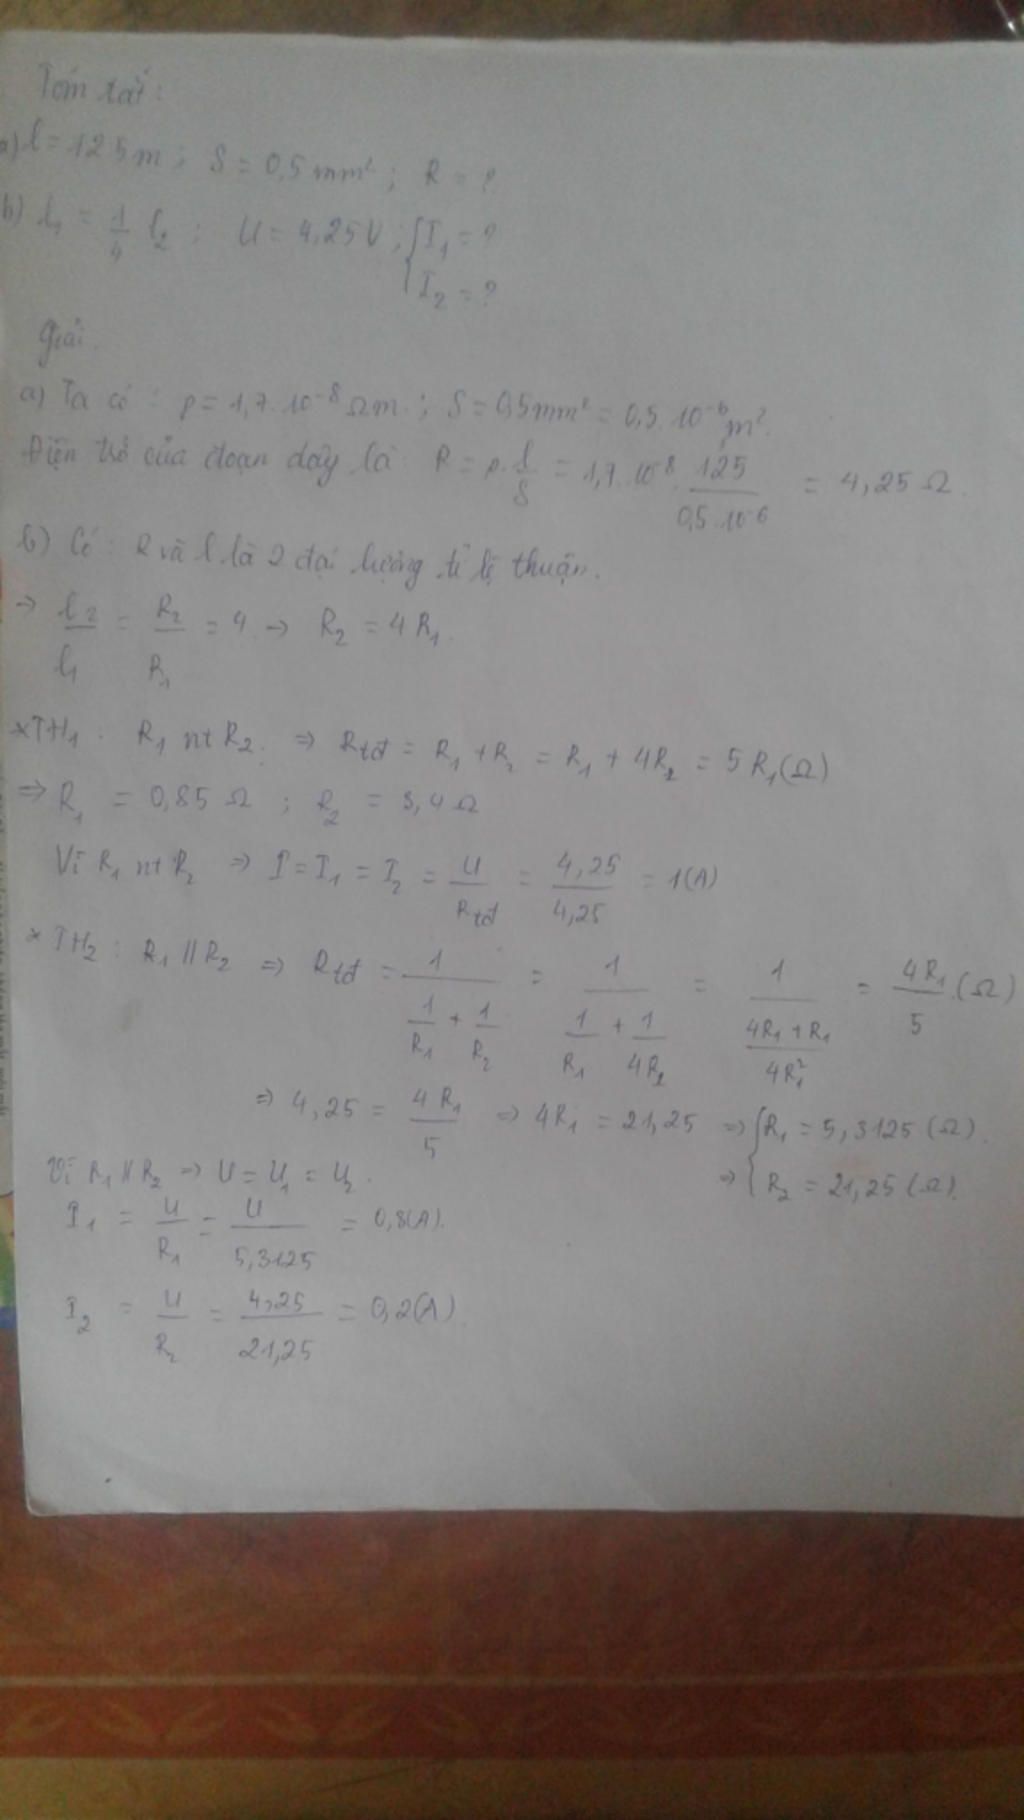 Tóm tắt:
a) l = 125m ; S = 0,5 mm² ; R = ?
b) l₁ = 1/4 l₂ ; U = 4,25V ; { I₁ = ?
I₂ = ?
Giải.
a) Ta có : ρ = 1,7.10⁻⁸ Ωm ; S = 0,5mm² = 0,5.10⁻⁶ m².
Điện trở của đoạn dây là: R = ρ.l/S = 1,7.10⁻⁸.125/0,5.10⁻⁶ = 4,25 Ω.
b) Có : R và l là 2 đại lượng tỉ lệ thuận.
→ l₂/l₁ = R₂/R₁ = 4 → R₂ = 4R₁.
*TH₁ : R₁ nt R₂. ⇒ Rtđ = R₁ + R₂ = R₁ + 4R₁ = 5R₁(Ω)
⇒ R₁ = 0,85 Ω ; R₂ = 3,4 Ω
Vì R₁ nt R₂ ⇒ I = I₁ = I₂ = U/Rtđ = 4,25/4,25 = 1(A)
* TH₂ : R₁ // R₂ ⇒ Rtđ = 1/(1/R₁ + 1/R₂) = 1/(1/R₁ + 1/4R₁) = 1/((4R₁ + R₁)/4R₁²) = 4R₁/5.(Ω)
⇒ 4,25 = 4R₁/5 ⇒ 4R₁ = 21,25 ⇒ { R₁ = 5,3125 (Ω).
⇒ R₂ = 21,25 (Ω).
Vì R₁ // R₂ ⇒ U = U₁ = U₂.
I₁ = U/R₁ = U/5,3125 = 0,8(A).
I₂ = U/R₂ = 4,25/21,25 = 0,2(A).